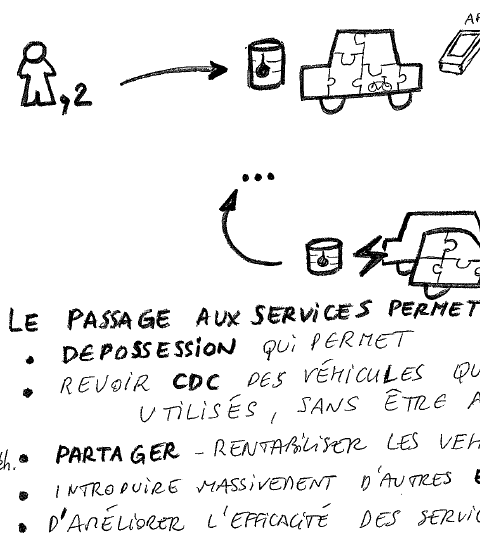 AP
,2
...
LE PASSAGE AUX SERVICES PERMET
• DEPOSSESSION QUI PERMET
• REVOIR CDC DES VÉHICULES QU
UTILISÉS, SANS ÊTRE A
• PARTAGER - RENTABILISER LES VEH
• INTRODUIRE MASSIVEMENT D'AUTRES
• D'AMÉLIORER L'EFFICACITÉ DES SERVIC